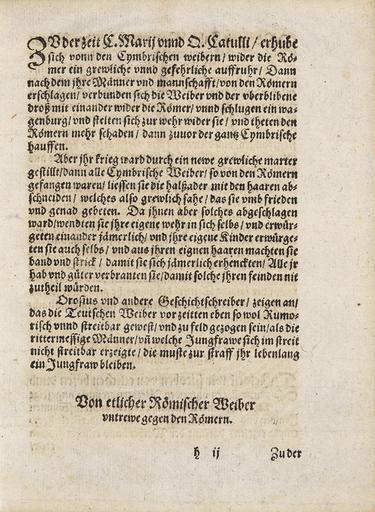 ZVder zeit C. Marij vnnd Q. Catulli / erhube
sich vonn den Cymbrischen weibern / wider die Rö-
mer ein grewliche vnnd gefehrliche auffruhr / Dann
nach dem jhre Männer vnd manuschafft / von den Römern
erschlagen / verbunden sich die Weiber vnd der vberblibene
droß mit einander wider die Römer / vnnd schlugen ein wa-
genburg / vnd stelten sich zur wehr wider sie / vnd theten den
Römern mehr schaden / dann zuuor der gantz Cymbrische
hauffen.
Aber jhr krieg ward durch ein newe grewliche marter
gestillt / dann alle Cymbrische Weiber / so von den Römern
gefangen waren / liessen sie die halßader mit den haaren ab-
schneiden / welches also grewlich sahe / das sie vmb frieden
vnd genad gebeten. Da jhnen aber solches abgeschlagen
ward / wendten sie jhre eigene wehr in sich selbs / vnd erwür-
geten einander jämerlich / vnd jhre eigene Kinder erwürge-
ten sie auch selbs / vnd aus jhren eignen haaren machten sie
band vnd strick / damit sie sich jämerlich erhenckten / Alle jr
hab vnd güter verbranten sie / damit solche jhren feinden nit
zutheil würden.
Orosius vnd andere Geschichtschreiber / zeigen an /
das die Teutschen Weiber vor zeitten eben so wol Rumo-
risch vnnd streitbar gewest / vnd zu feld gezogen sein / als die
rittermessige Männer / vñ welche Jungfrawe sich im streit
nicht streitbar erzeigte / die muste zur straff jhr lebenlang
ein Jungfraw bleiben.
Von etlicher Römischer Weiber
vntrewe gegen den Römern.
h ij Zu der